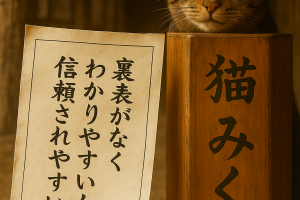 猫みく
裏表がなく
わかりやすい
信頼されやすい